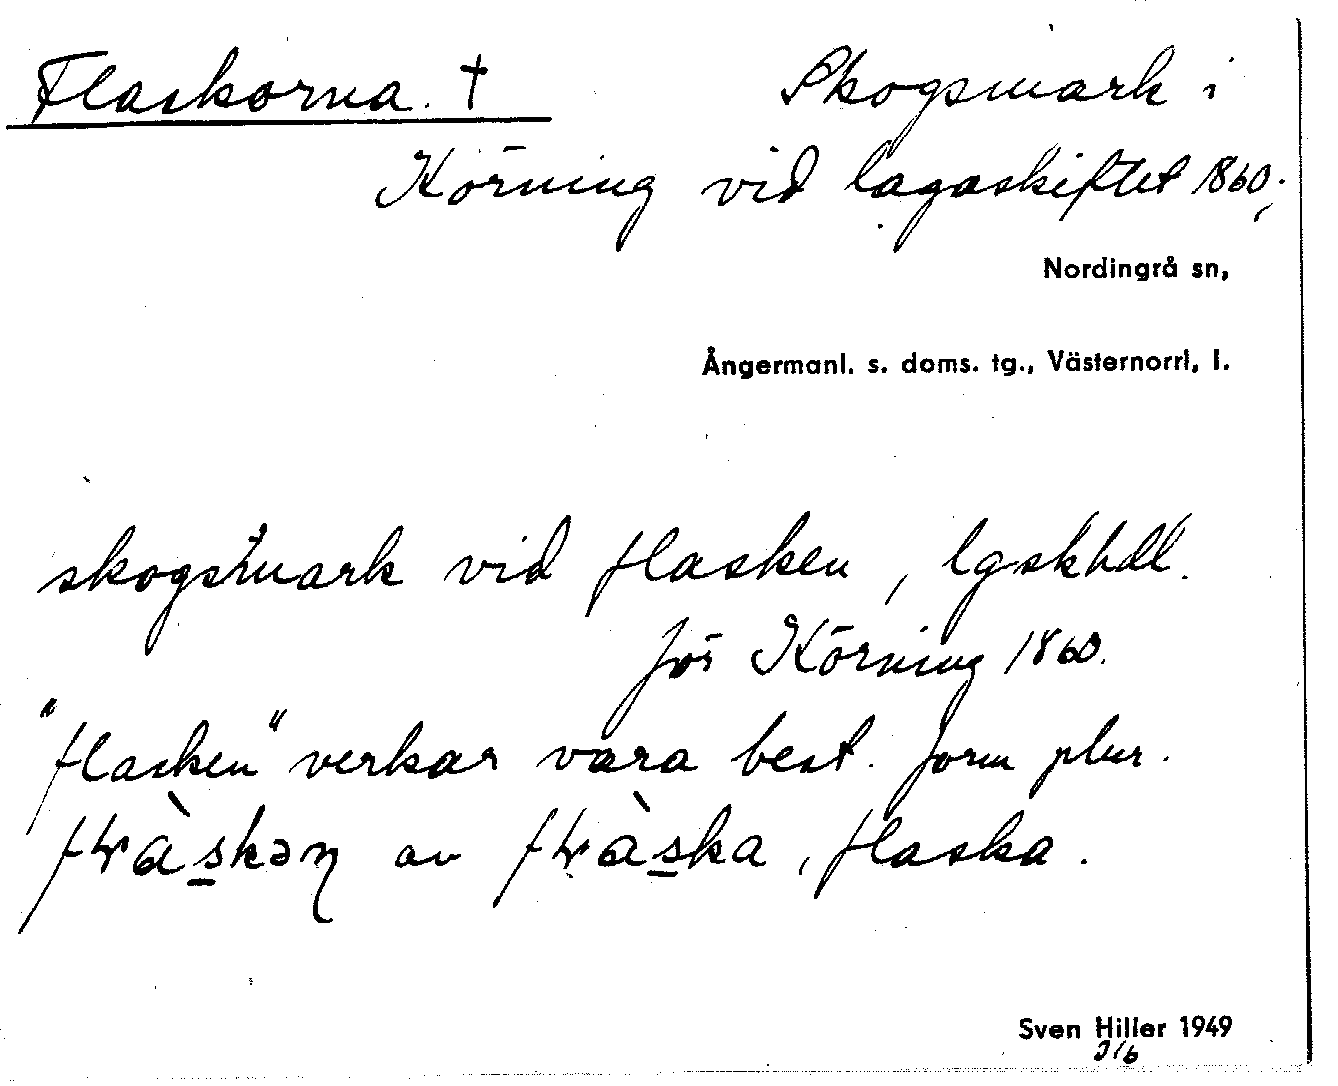 Flaskorna. †   Skogsmark i
Körning vid lagaskiftet 1860;
Nordingrå sn,
Ångermanl. s. doms. tg., Västernorrl, l.
skogsmark vid flasken, lgskhdl.
för Körning 1860.
"flasken" verkar vara best. form plur.
av flaska.
Sven Hiller 1949